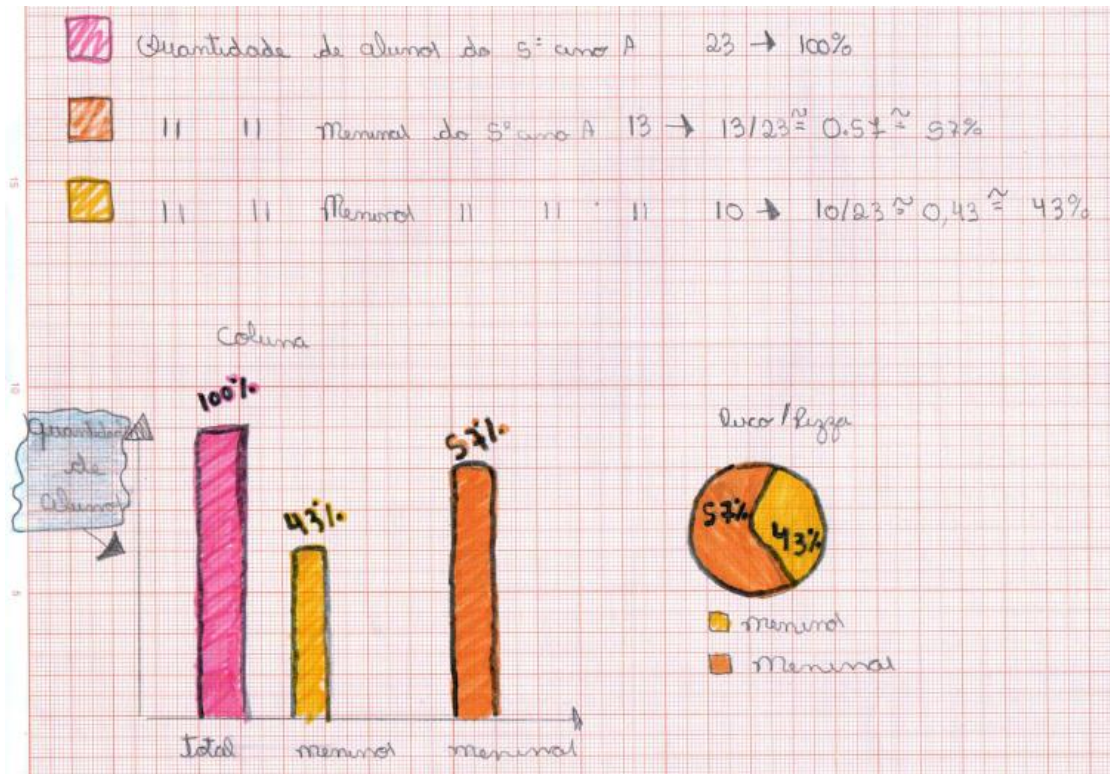 Quantidade de alunos do 5º ano A 23 → 100%
" " Meninas do 5º ano A 13 → 13/23 ≅ 0.57 ≅ 57%
15
" " Meninos " " " 10 → 10/23 ≅ 0,43 ≅ 43%
Coluna
10
100%
Quantidade
de
alunos
57%
43%
5
Total
meninos
meninas
Disco/Pizza
57%
43%
meninos
Meninas